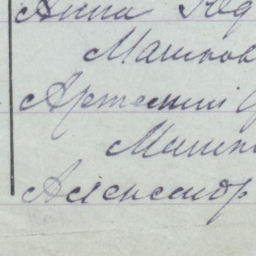 Анна
Машков
Артемий
Машк
Александр